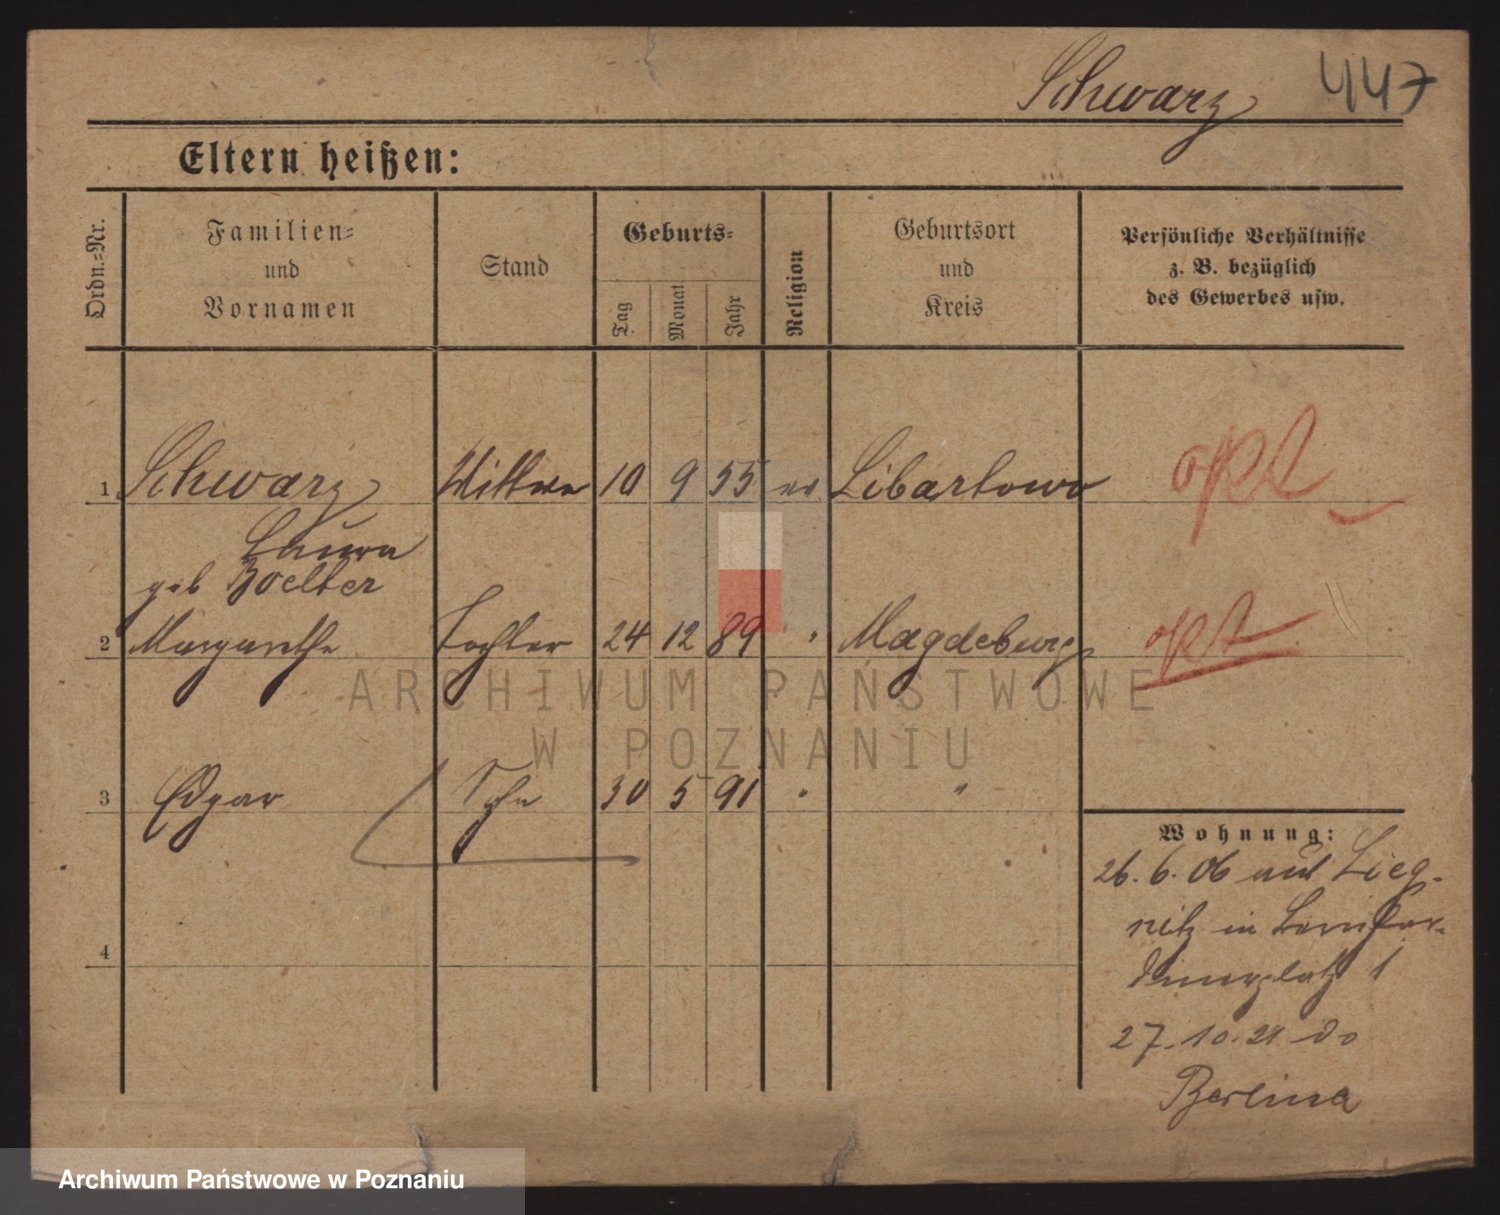 Schwarz 447
Eltern heißen:
Ordn.-Nr.
Familien-
und
Vornamen
Stand
Geburts-
Tag
Monat
Jahr
Religion
Geburtsort
und
Kreis
Persönliche Verhältnisse
z. B. bezüglich
des Gewerbes usw.
1 Schwarz Wittwe 10 9 55 ev Libartowo opt
Laura
geb Boelter
2 Margarethe Tochter 24 12 89 " Magdeburg opt
3 Edgar Sohn 30 5 91 " "
4
Wohnung:
26. 6. 06 aus Lieg-
nitz in Bernhar-
dinerplatz 1
27. 10. 21 do
Berlina
ARCHIWUM PAŃSTWOWE
W POZNANIU
Archiwum Państwowe w Poznaniu